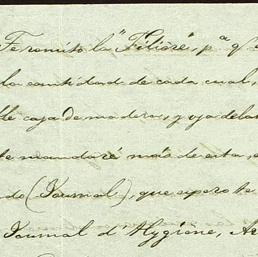 Te remito la "Filière", pª qᵉ
la cantidad de cada cual,
caja de madera, y ojala
te mandaré más de esta,
(Journal), que espero te
Journal d'Hygiène,